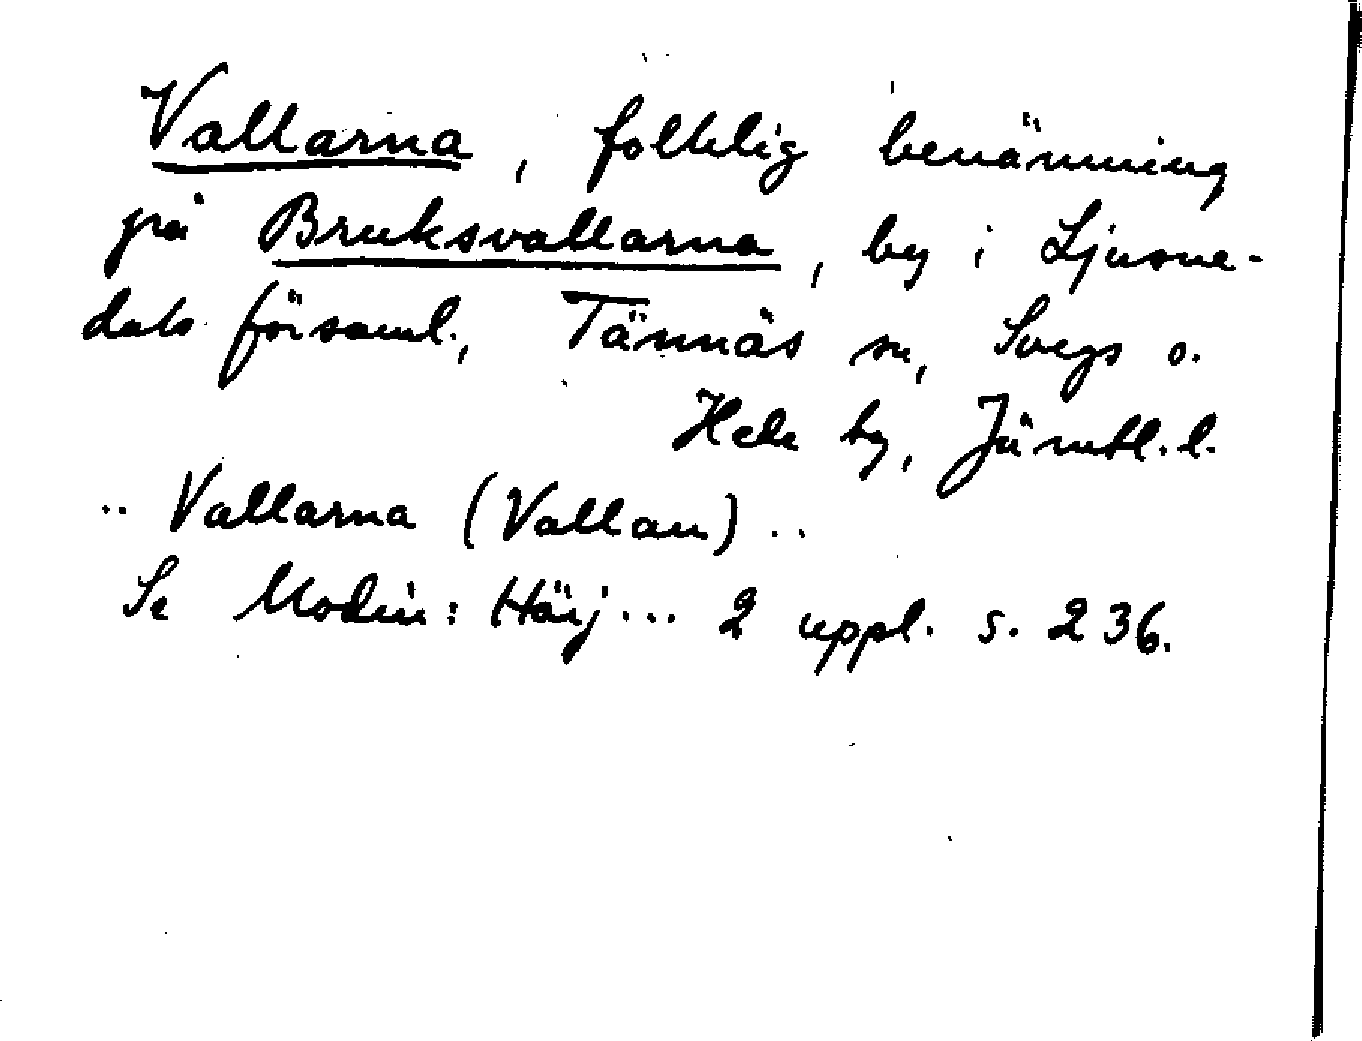 Vallarna, folklig benämning
på Bruksvallarna, by i Ljusne-
dals församl., Tännäs sn, Svegs o.
Hede tg, Jämtl. l.
.. Vallarna (Vallan) ..
Se Modin: Härj... 2 uppl. s. 236.